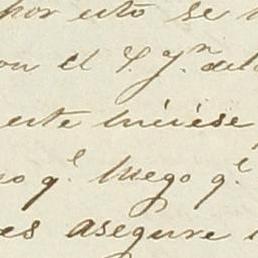 por esto se
on el S. Gn. del
este hiciese
no qe. luego qe.
es asegure